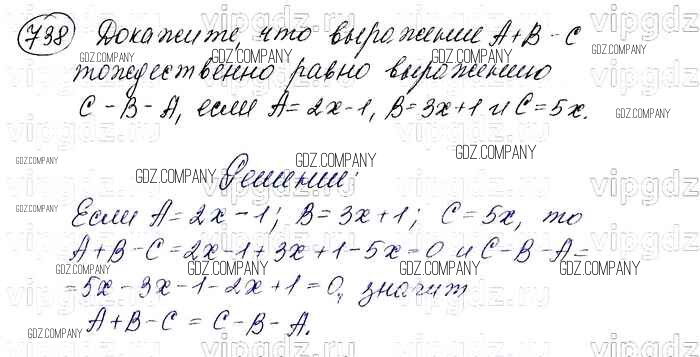 738 Докажите, что выражение A+B-C
тождественно равно выражению
C-B-A, если A=2x-1, B=3x+1 и C=5x.
Решение:
Если A=2x-1; B=3x+1; C=5x, то
A+B-C=2x-1+3x+1-5x=0 и C-B-A=
=5x-3x-1-2x+1=0, значит
A+B-C=C-B-A.